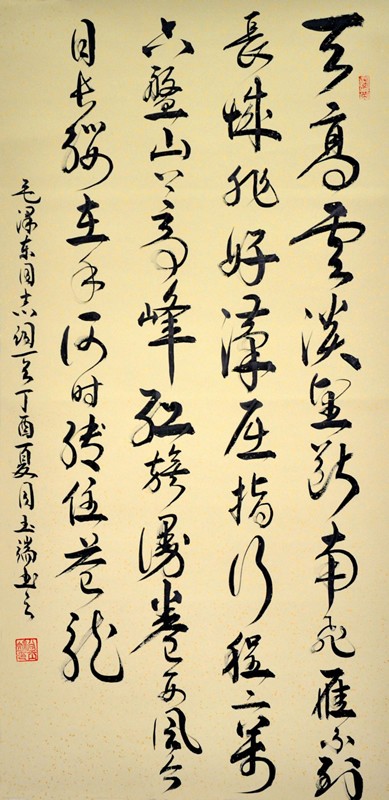 天高雲淡望斷南飛雁不到
長城非好漢屈指行程二萬
六盤山上高峰紅旗漫卷西風今
日长缨在手何时缚住苍龙
毛泽东同志词一首丁酉夏月玉端书